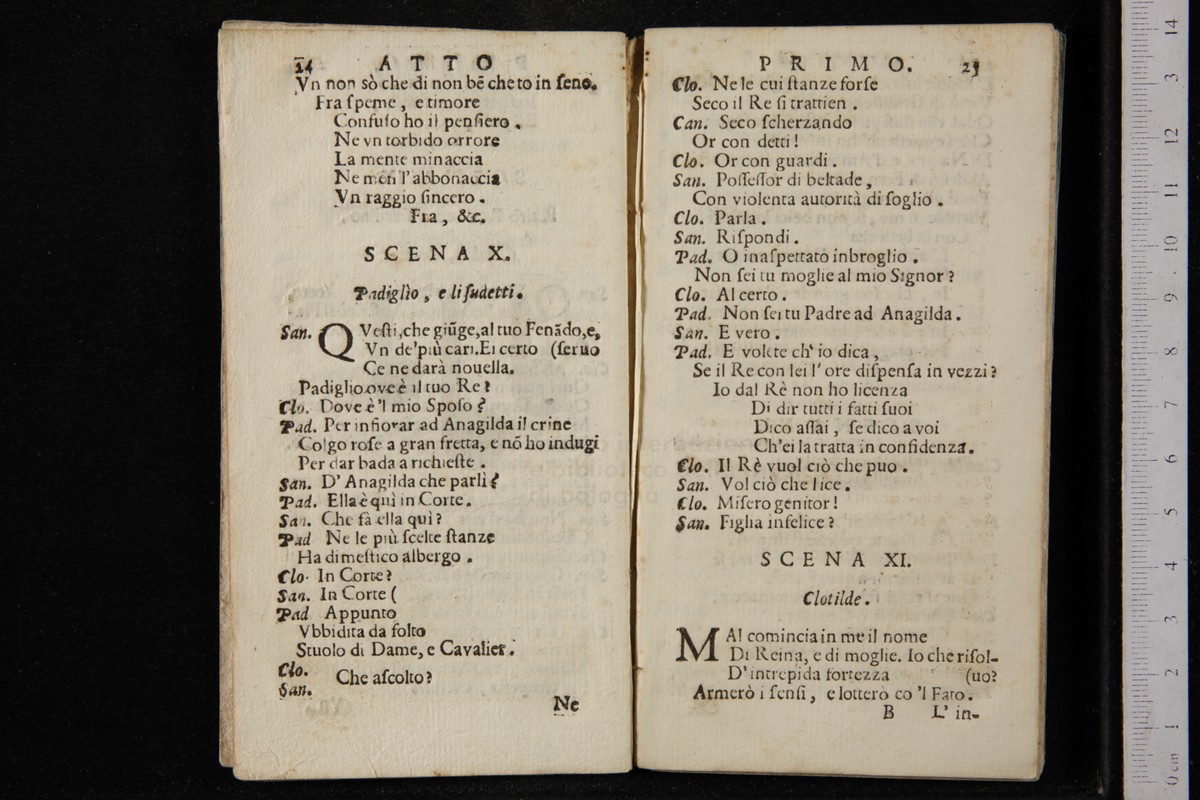 24 ATTO
Vn non sò che di non bē cheto in ſeno.
Fra ſpeme, e timore
Confuſo ho il penſiero.
Ne vn torbido orrore
La mente minaccia
Ne men l'abbonaccia
Vn raggio ſincero.
Fra, &c.
SCENA X.
Padiglio, e li ſudetti.
San. QVeſti, che giūge, al tuo Fenādo, e,
Vn de' più cari. Ei certo (ſeruo
Ce ne darà nouella.
Padiglio ove è il tuo Re?
Clo. Dove è 'l mio Spoſo?
Pad. Per infiorar ad Anagilda il crine
Colgo roſe a gran fretta, e nō ho indugi
Per dar bada a richieſte.
San. D' Anagilda che parli?
Pad. Ella è quì in Corte.
San. Che fà ella quì?
Pad Ne le più ſcelte ſtanze
Ha dimeſtico albergo.
Clo. In Corte?
San. In Corte (
Pad Appunto
Vbbidita da folto
Stuolo di Dame, e Cavalier.
Clo.
San. Che aſcolto?
Ne
PRIMO. 25
Clo. Ne le cui ſtanze forſe
Seco il Re ſi trattien.
Can. Seco ſcherzando
Or con detti!
Clo. Or con guardi.
San. Poſſeſſor di beltade,
Con violenta autorità di ſoglio.
Clo. Parla.
San. Riſpondi.
Pad. O inaſpettato inbroglio.
Non ſei tu moglie al mio Signor?
Clo. Al certo.
Pad. Non ſei tu Padre ad Anagilda.
San. E vero.
Pad. E volete ch' io dica,
Se il Re con lei l' ore diſpenſa in vezzi?
Io dal Rè non ho licenza
Di dir tutti i fatti ſuoi
Dico aſſai, ſe dico a voi
Ch'ei la tratta in confidenza.
Clo. Il Rè vuol ciò che puo.
San. Vol ciò che lice.
Clo. Miſero genitor!
San. Figlia infelice?
SCENA XI.
Clotilde.
MAl comincia in me il nome
Di Reina, e di moglie. Io che riſol-
D'intrepida fortezza (uo?
Armerò i ſenſi, e lotterò co 'l Fato.
B L' in-